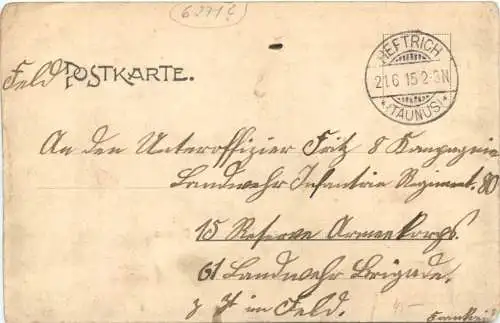 6271 €
HEFTRICH
Feld POSTKARTE.
21.6 15 2-3N
*(TAUNUS)*
An den Unteroffizier Fritz 8 Kompagnie
Landwehr Infantrie Regiment. 80
15 Reserve Armeekorps.
61 Landwehr Brigade.
z Zt im Feld.